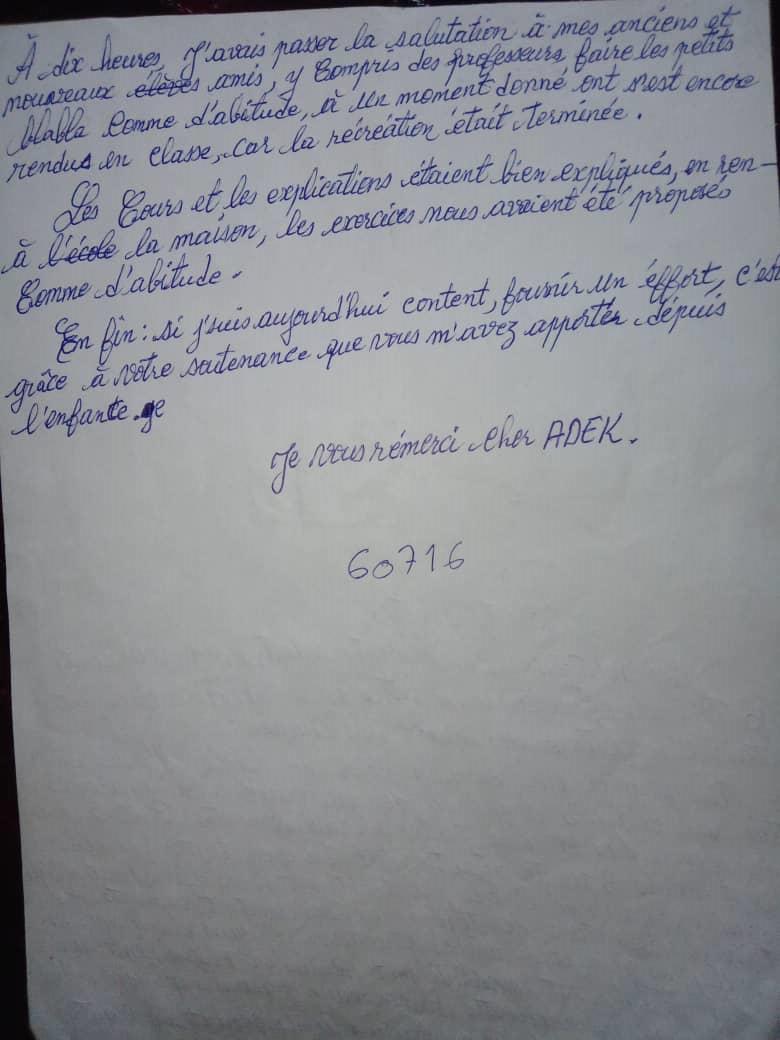 À dix heures, j'avais passer la salutation à mes anciens et
nouveaux élèves amis, y compris des professeurs, faire les petits
blabla comme d'abitude, à un moment donné ont s'est encore
rendus en classe, car la récréation était terminée.
Les Cours et les explications étaient bien expliqués, en ren-
à l'école la maison, les exercices nous avaient été proposés
Comme d'abitude.
En fin : si j'suis aujourd'hui content, fournir un éffort, c'est
grâce à votre soutenance que vous m'avez apportér dépuis
l'enfance. ge
Je vous rémerci cher ADEK.
60716